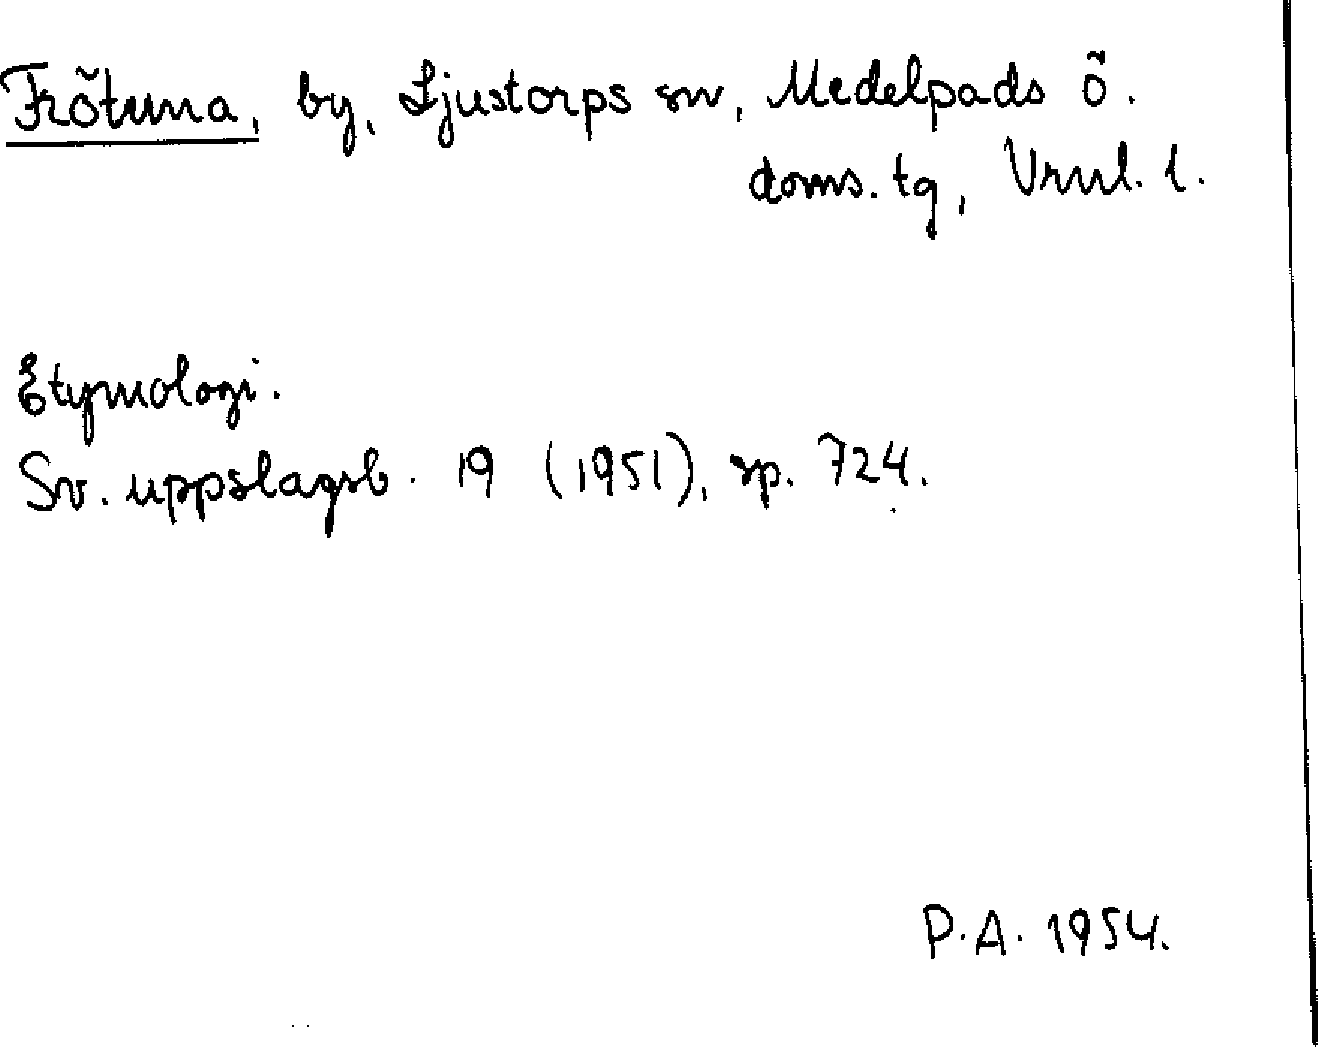 Frötuna, by, Ljustorps sn, Medelpads ö.
doms. tg, Vrnl. l.
Etymologi.
Sv. uppslagsb. 19 (1951), sp. 724.
P.A. 1954.